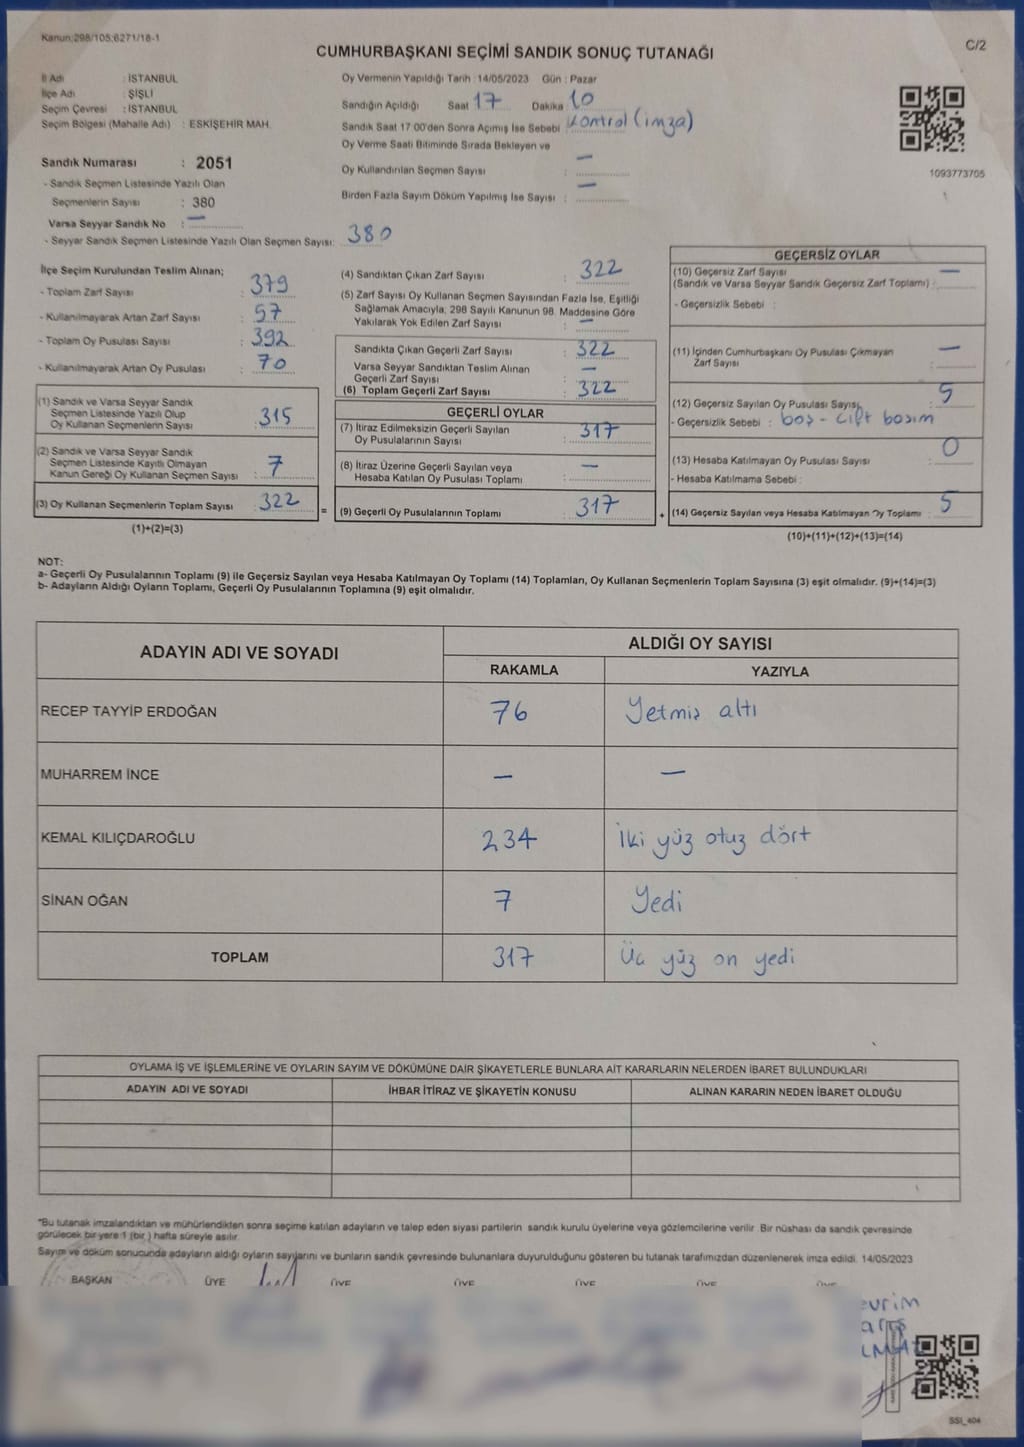 Kanun:298/105;6271/18-1
C/2
CUMHURBAŞKANI SEÇİMİ SANDIK SONUÇ TUTANAĞI
İl Adı : İSTANBUL
İlçe Adı : ŞİŞLİ
Seçim Çevresi : İSTANBUL
Seçim Bölgesi (Mahalle Adı) : ESKİŞEHİR MAH.
Sandık Numarası : 2051
- Sandık Seçmen Listesinde Yazılı Olan
Seçmenlerin Sayısı : 380
Varsa Seyyar Sandık No : —
- Seyyar Sandık Seçmen Listesinde Yazılı Olan Seçmen Sayısı: 380
Oy Vermenin Yapıldığı Tarih : 14/05/2023 Gün : Pazar
Sandığın Açıldığı Saat 17 Dakika 10
Sandık Saat 17:00'den Sonra Açımış İse Sebebi : Kontrol (imza)
Oy Verme Saati Bitiminde Sırada Bekleyen ve
Oy Kullandırılan Seçmen Sayısı : —
Birden Fazla Sayım Döküm Yapılmış İse Sayısı : —
1093773705
İlçe Seçim Kurulundan Teslim Alınan;
- Toplam Zarf Sayısı : 379
- Kullanılmayarak Artan Zarf Sayısı : 57
- Toplam Oy Pusulası Sayısı : 392
- Kullanılmayarak Artan Oy Pusulası : 70
(1) Sandık ve Varsa Seyyar Sandık
Seçmen Listesinde Yazılı Olup
Oy Kullanan Seçmenlerin Sayısı : 315
(2) Sandık ve Varsa Seyyar Sandık
Seçmen Listesinde Kayıtlı Olmayan
Kanun Gereği Oy Kullanan Seçmen Sayısı : 7
(3) Oy Kullanan Seçmenlerin Toplam Sayısı : 322
(1)+(2)=(3)
(4) Sandıktan Çıkan Zarf Sayısı : 322
(5) Zarf Sayısı Oy Kullanan Seçmen Sayısından Fazla İse, Eşitliği
Sağlamak Amacıyla; 298 Sayılı Kanunun 98. Maddesine Göre
Yakılarak Yok Edilen Zarf Sayısı : —
Sandıkta Çıkan Geçerli Zarf Sayısı : 322
Varsa Seyyar Sandıktan Teslim Alınan
Geçerli Zarf Sayısı : —
(6) Toplam Geçerli Zarf Sayısı : 322
GEÇERLİ OYLAR
(7) İtiraz Edilmeksizin Geçerli Sayılan
Oy Pusulalarının Sayısı : 317
(8) İtiraz Üzerine Geçerli Sayılan veya
Hesaba Katılan Oy Pusulası Toplamı : —
= (9) Geçerli Oy Pusulalarının Toplamı : 317
GEÇERSİZ OYLAR
(10) Geçersiz Zarf Sayısı —
(Sandık ve Varsa Seyyar Sandık Geçersiz Zarf Toplamı) :
- Geçersizlik Sebebi :
(11) İçinden Cumhurbaşkanı Oy Pusulası Çıkmayan —
Zarf Sayısı :
(12) Geçersiz Sayılan Oy Pusulası Sayısı : 5
- Geçersizlik Sebebi : boş - çift basım
(13) Hesaba Katılmayan Oy Pusulası Sayısı : 0
- Hesaba Katılmama Sebebi :
+ (14) Geçersiz Sayılan veya Hesaba Katılmayan Oy Toplamı : 5
(10)+(11)+(12)+(13)=(14)
NOT:
a- Geçerli Oy Pusulalarının Toplamı (9) ile Geçersiz Sayılan veya Hesaba Katılmayan Oy Toplamı (14) Toplamları, Oy Kullanan Seçmenlerin Toplam Sayısına (3) eşit olmalıdır. (9)+(14)=(3)
b- Adayların Aldığı Oyların Toplamı, Geçerli Oy Pusulalarının Toplamına (9) eşit olmalıdır.
ADAYIN ADI VE SOYADI ALDIĞI OY SAYISI
RAKAMLA YAZIYLA
RECEP TAYYİP ERDOĞAN 76 Yetmiş altı
MUHARREM İNCE — —
KEMAL KILIÇDAROĞLU 234 İki yüz otuz dört
SİNAN OĞAN 7 Yedi
TOPLAM 317 Üç yüz on yedi
OYLAMA İŞ VE İŞLEMLERİNE VE OYLARIN SAYIM VE DÖKÜMÜNE DAİR ŞİKAYETLERLE BUNLARA AİT KARARLARIN NELERDEN İBARET BULUNDUKLARI
ADAYIN ADI VE SOYADI İHBAR İTİRAZ VE ŞİKAYETİN KONUSU ALINAN KARARIN NEDEN İBARET OLDUĞU
"Bu tutanak imzalandıktan ve mühürlendikten sonra seçime katılan adayların ve talep eden siyasi partilerin sandık kurulu üyelerine veya gözlemcilerine verilir. Bir nüshası da sandık çevresinde
görülecek bir yere 1 (bir ) hafta süreyle asılır.
Sayım ve döküm sonucunda adayların aldığı oyların sayılarını ve bunların sandık çevresinde bulunanlara duyurulduğunu gösteren bu tutanak tarafımızdan düzenlenerek imza edildi. 14/05/2023
BAŞKAN ÜYE ÜYE ÜYE ÜYE ÜYE
SSI_404